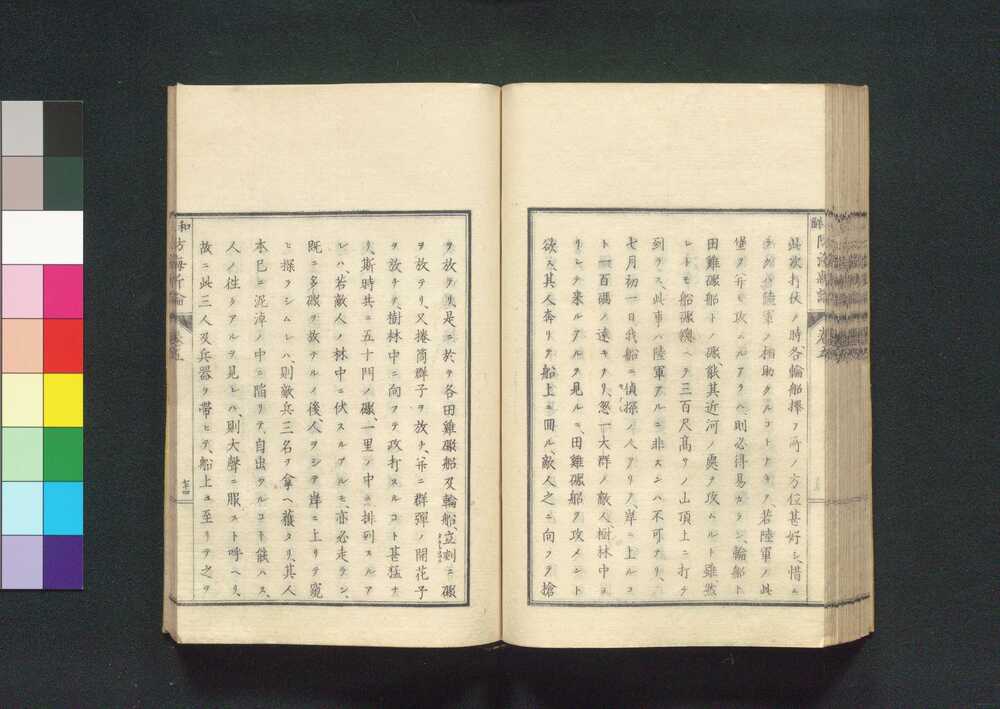 此次打仗ノ時各輪船擇フ所ノ方位甚好シ、惜ム
ラクハ陸軍ノ相助クルコトナキヲ、若陸軍ノ此
堡ヲ并セ攻ムルアラハ、則必得易カラン、輪船ト
田雞礟船トノ礟能其近河ノ處ヲ攻ムルト雖然
レトモ船礟ヘテ三百尺高サノ山頂上ニ打チ
到ラス、此事ハ陸軍アルニ非スンハ不可ナリ、
七月初一日我船ニ偵探ノ人アリ、岸ニ上ルコ
ト一百碼ノ遠キナリ、忽一大群ノ敵人樹林中ヨ
リシテ來ルアルヲ見ルニ、田雞礟船ヲ攻メント
欲ス、其人奔リテ船上ニ回ル、敵人之ニ向フテ搶
ヲ放テリ、是ニ於テ各田雞礟船及輪船、立刻ニ礟
ヲ放テリ、又捲筒群子ヲ放チ、并ニ群彈ノ開花子
ヲ放チテ、樹林中ニ向フテ攻打スルコト甚猛ナ
リ、斯時共ニ五十門ノ礟、一里ノ中ニ排列スルア
レハ、若敵人ノ林中ニ伏スルアルモ、亦必走ラン、
既ニ多礟ヲ放チルノ後、人ヲシテ岸ニ上リテ窺
ヒ探ラシムレハ、則敵兵三名ヲ拿ヘ獲タリ、其人
本已ニ泥淖ノ中ニ陷リテ、自出ツルコト能ハス、
人ノ往クアルヲ見レハ、則大聲ニ服スト呼ヘリ、
故ニ此三人及兵器ヲ帶ヒテ、船上ニ至リテ之ヲ